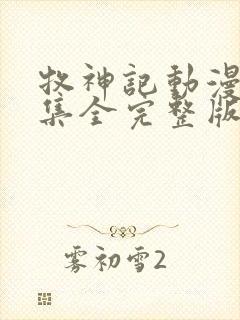 牧神記動漫
集全完整版
雾初雪2